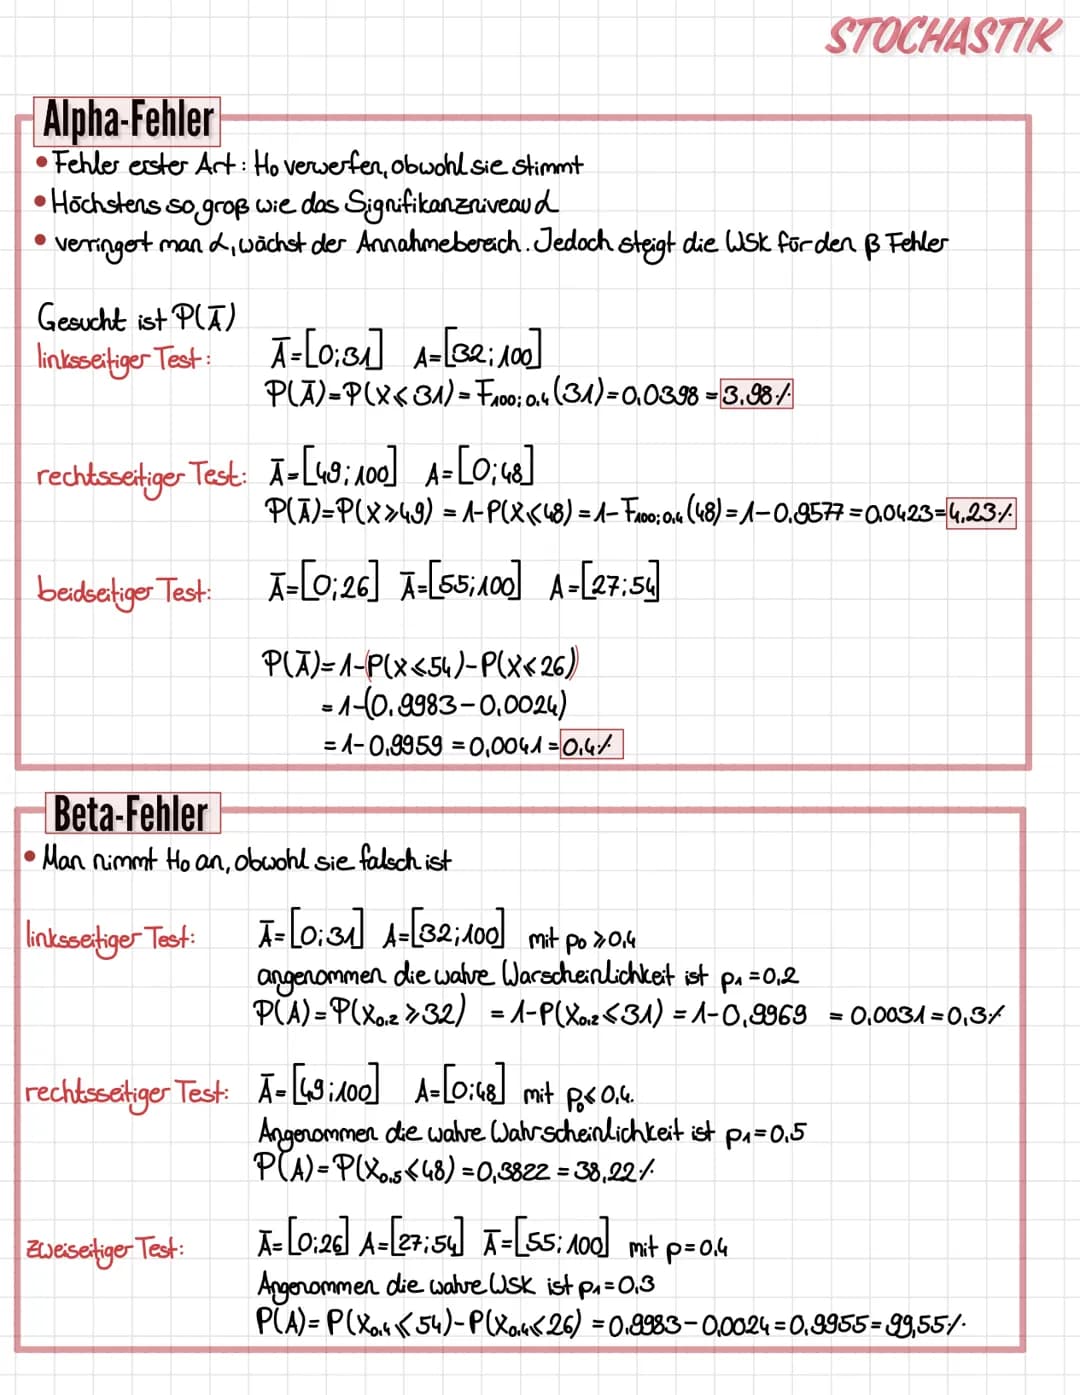 STOCHASTIK
Alpha-Fehler
• Fehler erster Art: H₀ verwerfen, obwohl sie stimmt
• Höchstens so groß wie das Signifikanzniveau α
• verringert man α, wächst der Annahmebereich. Jedoch steigt die WSK für den β Fehler
Gesucht ist P(Ā)
linksseitiger Test: Ā=[0;31] A=[32;100]
P(Ā)=P(X≤31)=F₁₀₀;₀,₄(31)=0,0398=3,98%
rechtsseitiger Test: Ā=[49;100] A=[0;48]
P(Ā)=P(X≥49)=1-P(X≤48)=1-F₁₀₀;₀,₄(48)=1-0,9577=0,0423=4,23%
beidseitiger Test: Ā=[0;26] Ā=[55;100] A=[27;54]
P(Ā)=1-(P(X≤54)-P(X≤26))
=1-(0,9983-0,0024)
=1-0,9959=0,0041=0,4%
Beta-Fehler
• Man nimmt H₀ an, obwohl sie falsch ist
linksseitiger Test: Ā=[0;31] A=[32;100] mit p₀≥0,4
angenommen die wahre Warscheinlichkeit ist p₁=0,2
P(A)=P(X₀,₂≥32) =1-P(X₀,₂≤31)=1-0,9969 =0,0031=0,3%
rechtsseitiger Test: Ā=[49;100] A=[0;48] mit p₀≤0,4.
Angenommen die wahre Wahrscheinlichkeit ist p₁=0,5
P(A)=P(X₀,₅≤48)=0,3822=38,22%
zweiseitiger Test: Ā=[0;26] A=[27;54] Ā=[55;100] mit p=0,4
Angenommen die wahre WSK ist p₁=0,3
P(A)=P(X₀,₄≤54)-P(X₀,₄≤26)=0,9983-0,0024=0,9955=99,55%.